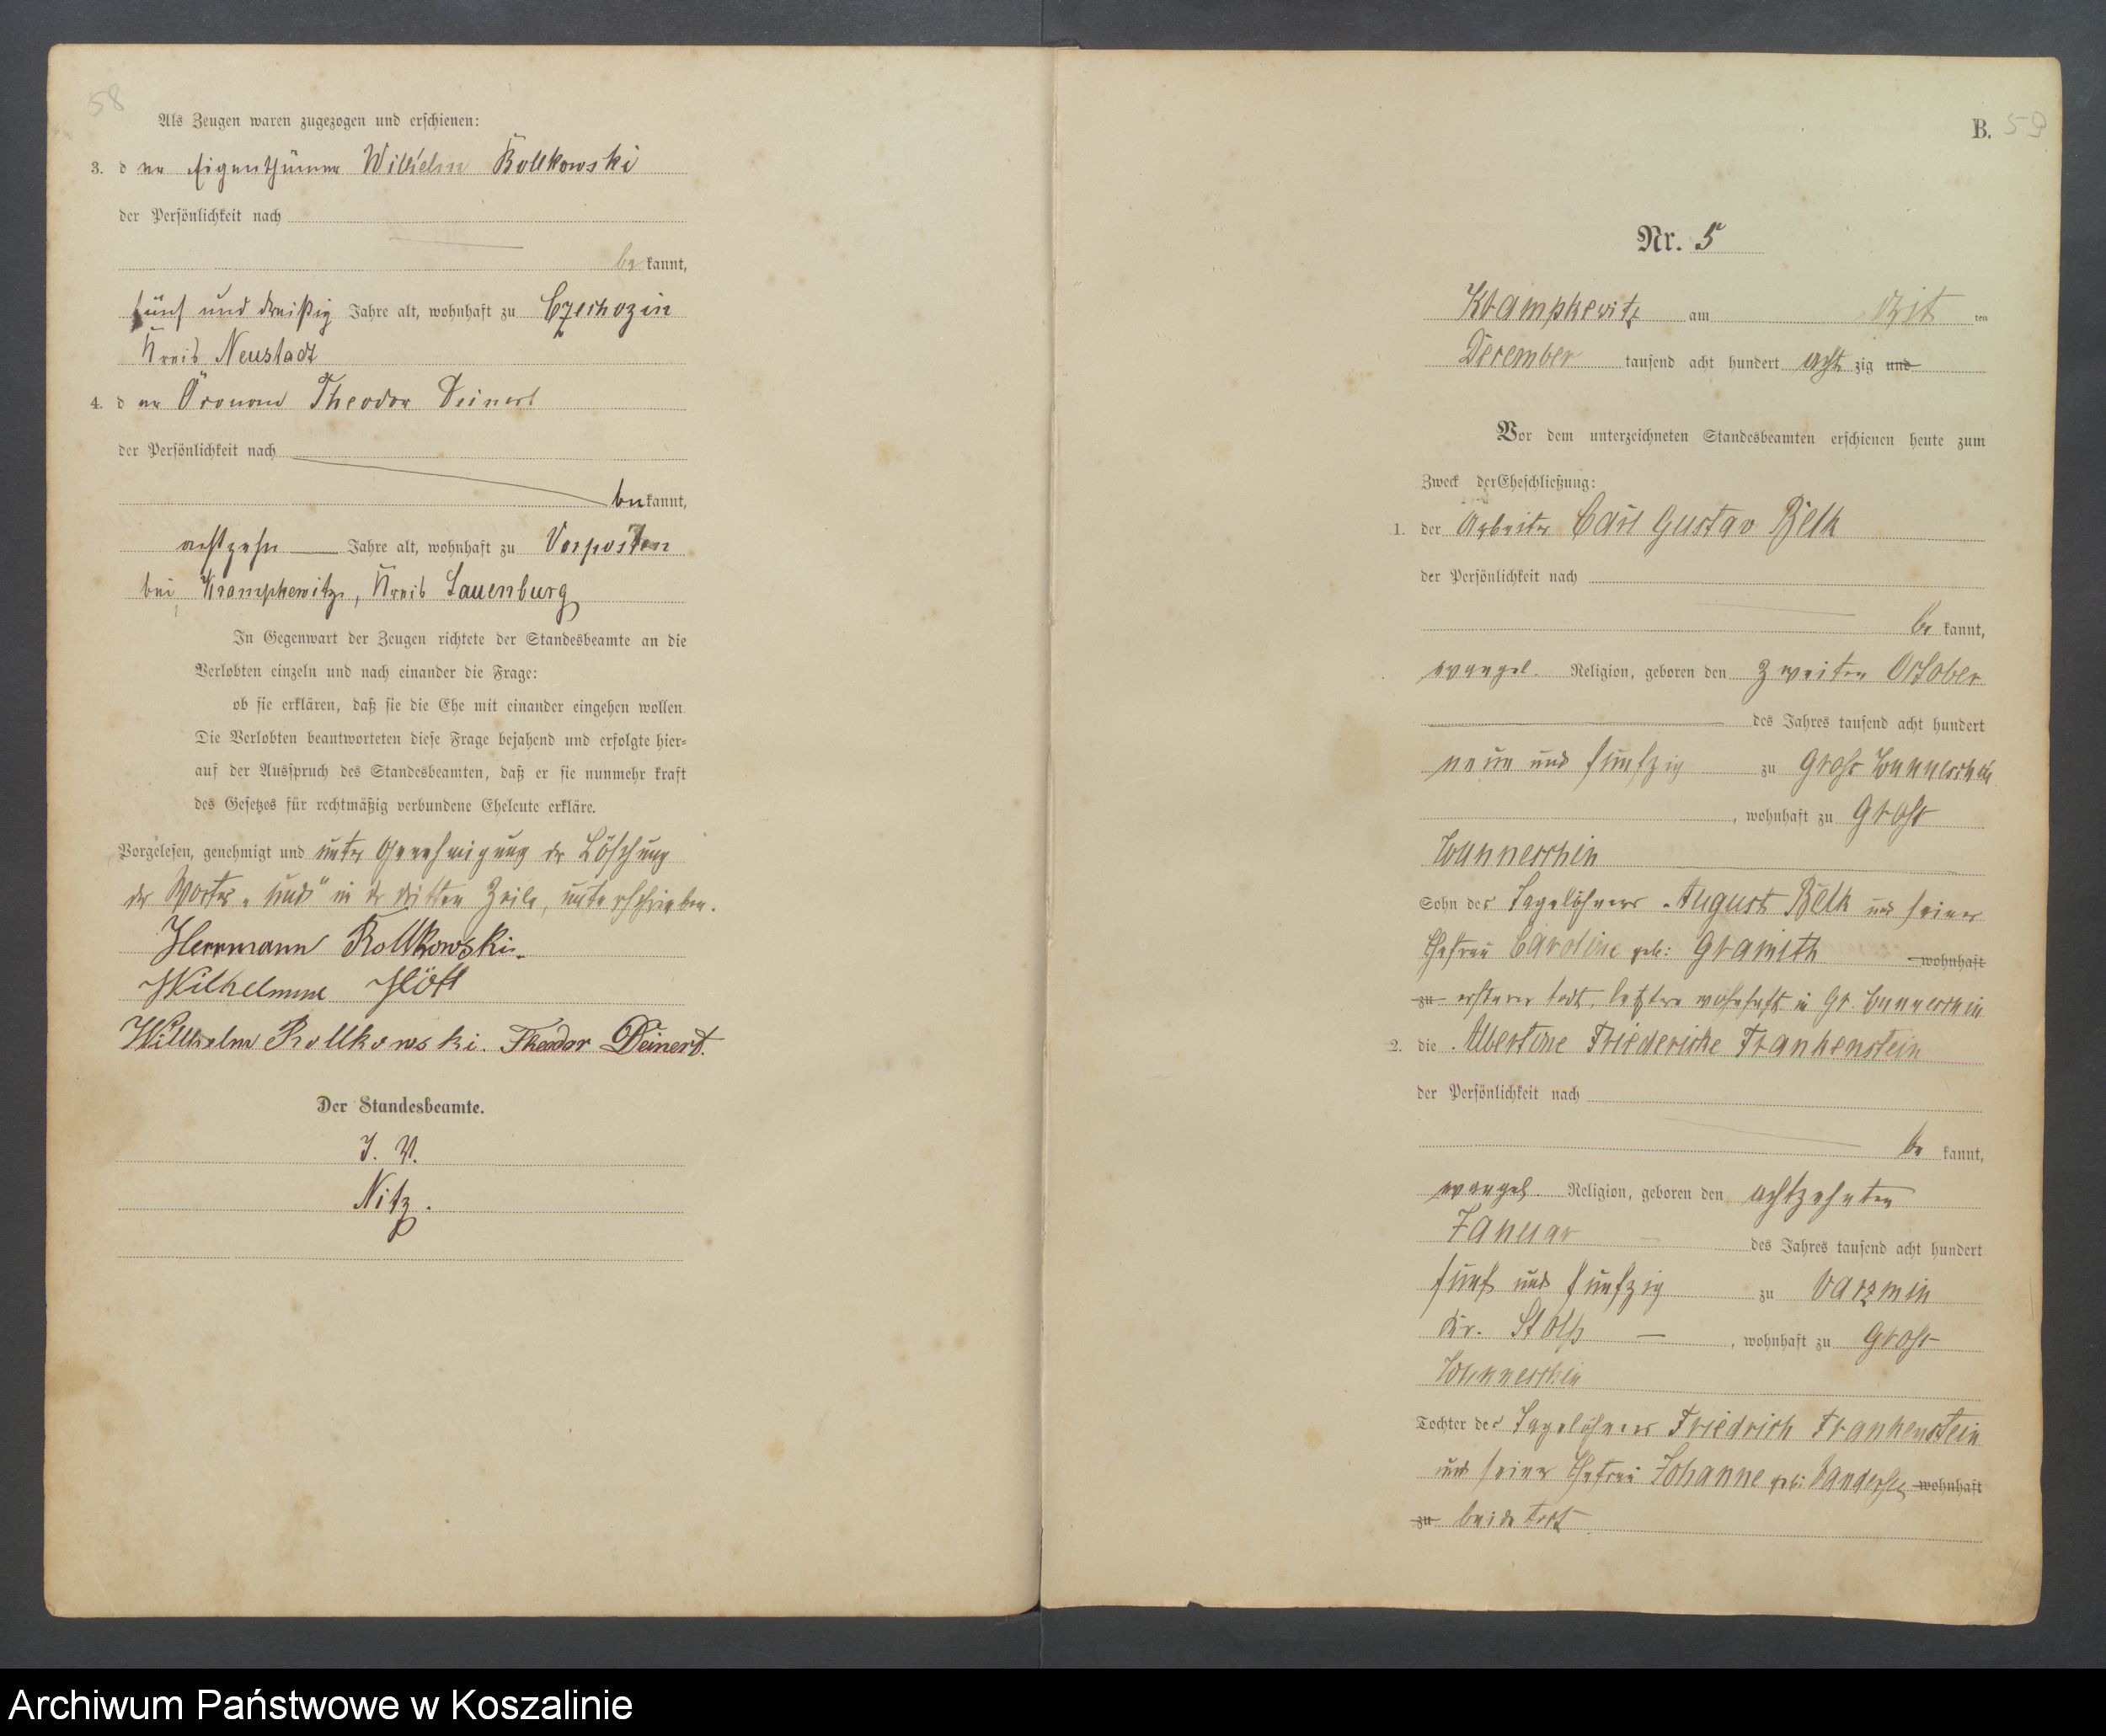 58
Als Zeugen waren zugezogen und erschienen:
3. d er Eigenthümer Wilhelm Rollkowski
der Persönlichkeit nach
be kannt,
fünf und dreißig Jahre alt, wohnhaft zu Czechozin
Kreis Neustadt
4. d er Öconom Theodor Deinert
der Persönlichkeit nach
be kannt,
achtzehn Jahre alt, wohnhaft zu Vorposten
bei Krampkewitz, Kreis Lauenburg
In Gegenwart der Zeugen richtete der Standesbeamte an die
Verlobten einzeln und nach einander die Frage:
ob sie erklären, daß sie die Ehe mit einander eingehen wollen.
Die Verlobten beantworteten diese Frage bejahend und erfolgte hier-
auf der Ausspruch des Standesbeamten, daß er sie nunmehr kraft
des Gesetzes für rechtmäßig verbundene Eheleute erkläre.
Vorgelesen, genehmigt und unter Genehmigung der Löschung
des Wortes „und" in der dritten Zeile, unterschrieben.
Herrmann Rollkowski.
Wilhelmine Höft
Wilhelm Rollkowski. Theodor Deinert.
Der Standesbeamte.
J. V.
Nitz.
B. 59
Nr. 5
Krampkewitz am ten
December tausend acht hundert acht zig und
Vor dem unterzeichneten Standesbeamten erschienen heute zum
Zweck der Eheschließung:
1. der Arbeiter Carl Gustav
der Persönlichkeit nach
be kannt,
evangel. Religion, geboren den zweiten October
des Jahres tausend acht hundert
neun und fünfzig zu Groß Wunneschin
, wohnhaft zu Groß
Wunneschin
Sohn des Tagelöhners August und seiner
Ehefrau Caroline geb: wohnhaft
zu ersterer todt, letztere wohnhaft in Gr. Wunneschin
2. die Albertine Friederike Frankenstein
der Persönlichkeit nach
be kannt,
evangel. Religion, geboren den achtzehnten
Januar des Jahres tausend acht hundert
fünf und fünfzig zu Varzmin
Kr. Stolp , wohnhaft zu Groß
Wunneschin
Tochter des Tagelöhners Friedrich Frankenstein
und seiner Ehefrau Johanne geb: wohnhaft
zu beide todt
Archiwum Państwowe w Koszalinie